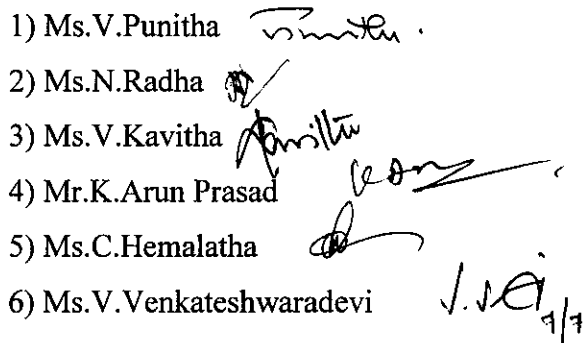 1) Ms.V.Punitha
2) Ms.N.Radha
3) Ms.V.Kavitha Kavitha
4) Mr.K.Arun Prasad
5) Ms.C.Hemalatha
6) Ms.V.Venkateshwaradevi 7/7